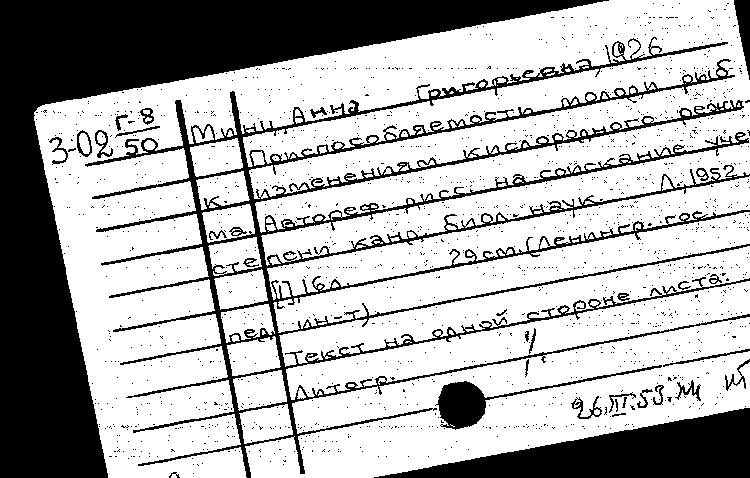 Минц, Анна Григорьевна, 1926
3-02 Г-8/50
Приспособляемости молоди рыб
к изменениям кислородного режи-
ма. Автореф. дисс. на соискание уче
степени канд. биол. наук. Л., 1952.
[I], 16 л. 29 см. (Ленингр. гос.
пед. ин-т).
Текст на одной стороне листа.
Литогр.
26.III.53.